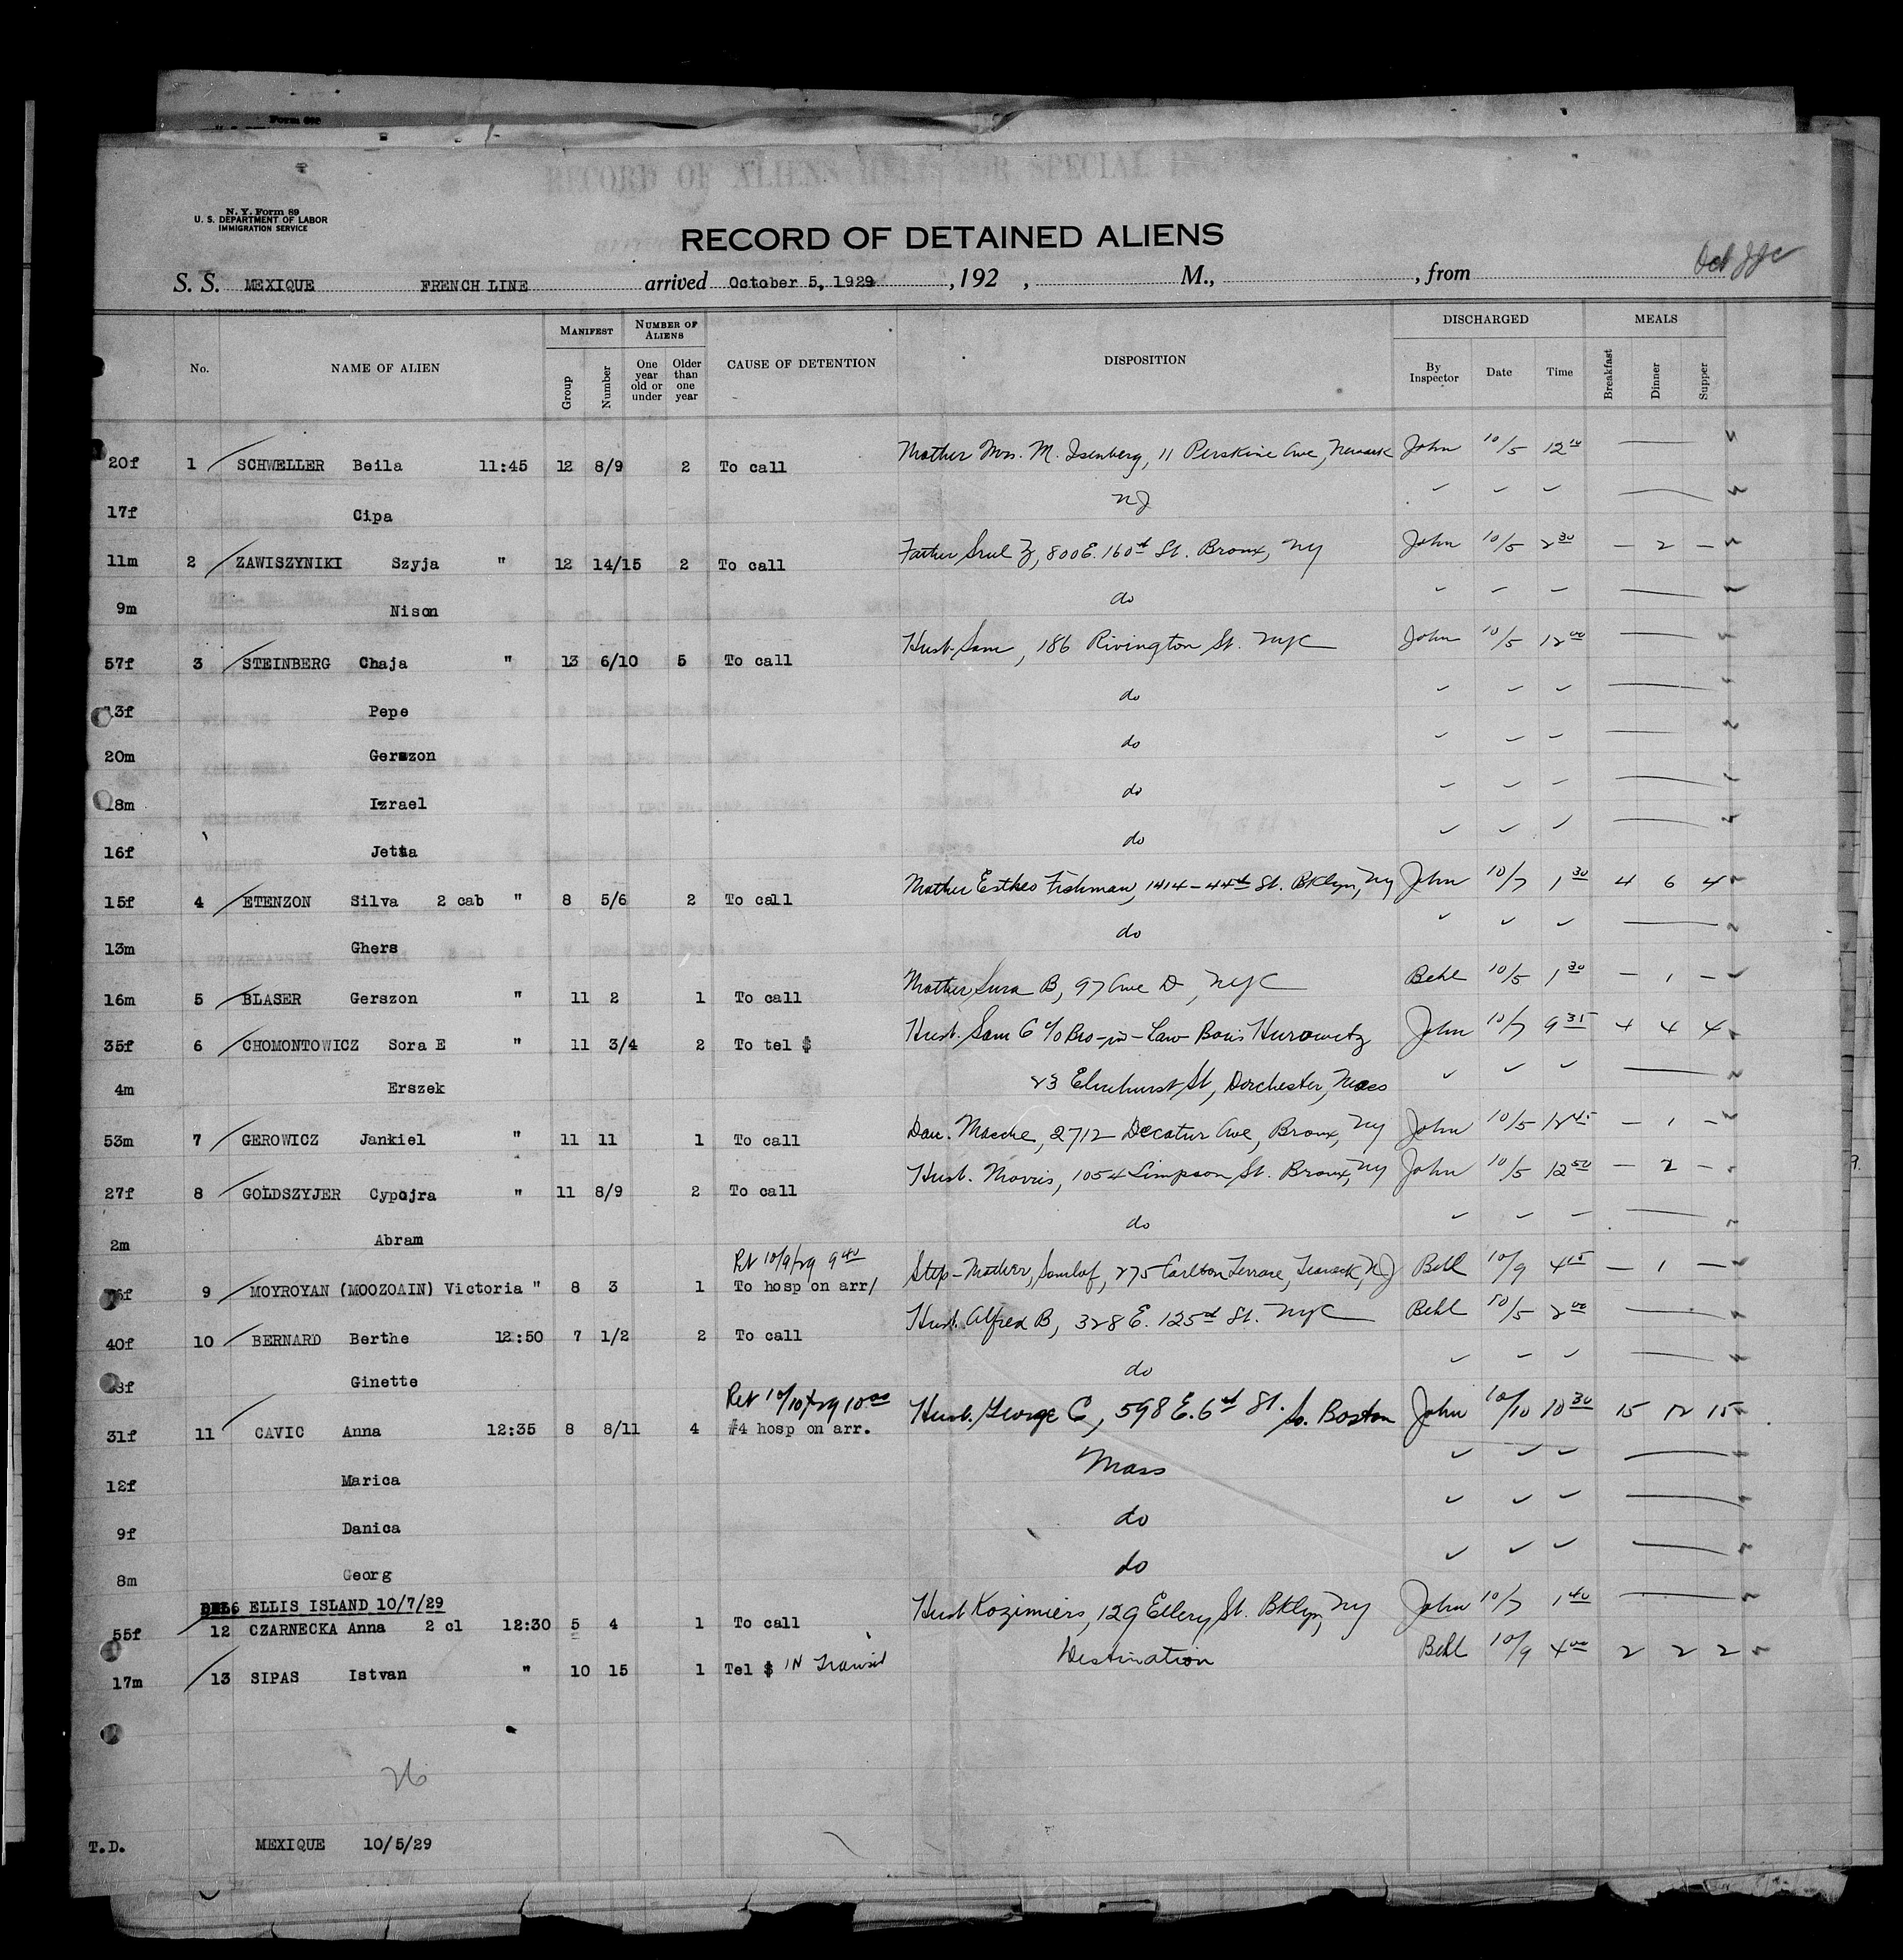 Form 89c
RECORD OF ALIENS HELD FOR SPECIAL INQUIRY
N. Y. Form 89
U. S. DEPARTMENT OF LABOR
IMMIGRATION SERVICE
RECORD OF DETAINED ALIENS
S. S. MEXIQUE FRENCH LINE arrived October 5, 1929, 192 , M., , from
No. NAME OF ALIEN MANIFEST Group Number NUMBER OF ALIENS One year old or under Older than one year CAUSE OF DETENTION DISPOSITION DISCHARGED By Inspector Date Time MEALS Breakfast Dinner Supper
20f 1 SCHWELLER Beila 11:45 12 8/9 2 To call Mother Mrs. M. Isenberg, 11 Perskine Ave, Newark John 10/5 12 10
17f Cipa NJ
11m 2 ZAWISZYNIKI Szyja " 12 14/15 2 To call Father Srul Z, 800 E. 160th St. Bronx, NY John 10/5 2 30 – 2 –
9m Nison do
57f 3 STEINBERG Chaja " 13 6/10 5 To call Husb. Sam, 186 Rivington St. NYC John 10/5 12 00
13f Pepe do
20m Gerszon do
18m Izrael do
16f Jetta do
15f 4 ETENZON Silva 2 cab " 8 5/6 2 To call Mother Esther Fishman, 1414-44th St. Bklyn, NY John 10/7 1 30 4 6 4
13m Ghers do
16m 5 BLASER Gerszon " 11 2 1 To call Mother Sura B, 97 Ave D, NYC Behl 10/5 1 30 – 1 –
35f 6 CHOMONTOWICZ Sora E " 11 3/4 2 To tel $ Husb. Sam C c/o Bro-in-Law Boris Hurowitz John 10/7 9 35 4 4 4
4m Erszek 23 Elmhurst St, Dorchester, Mass
53m 7 GEROWICZ Jankiel " 11 11 1 To call Dau. Macche, 2712 Decatur Ave, Bronx, NY John 10/5 12 45 – 1 –
27f 8 GOLDSZYJER Cypojra " 11 8/9 2 To call Husb. Morris, 1054 Simpson St. Bronx, NY John 10/5 12 50 – 2 –
2m Abram do
Ret 10/9/29 9 40
9 MOYROYAN (MOOZOAIN) Victoria " 8 3 1 To hosp on arr/ Step-Mother, 275 Carlton Terrace, Teaneck, NJ Behl 10/9 4 15 – 1 –
40f 10 BERNARD Berthe 12:50 7 1/2 2 To call Husb. Alfred B, 328 E. 125th St. NYC Behl 10/5 2 00
Ginette do
Ret 10/10/29 10 00
31f 11 CAVIC Anna 12:35 8 8/11 4 #4 hosp on arr. Husb. George C, 598 E. 6th St. So. Boston John 10/10 10 30 15 12 15
12f Marica Mass
9f Danica do
8m Georg do
ELLIS ISLAND 10/7/29
55f 12 CZARNECKA Anna 2 cl 12:30 5 4 1 To call Husb Kozimiers, 129 Ellery St. Bklyn, NY John 10/7 1 40
17m 13 SIPAS Istvan " 10 15 1 Tel $ IN Transit Destination Behl 10/9 4 00 2 2 2
26
T.D. MEXIQUE 10/5/29